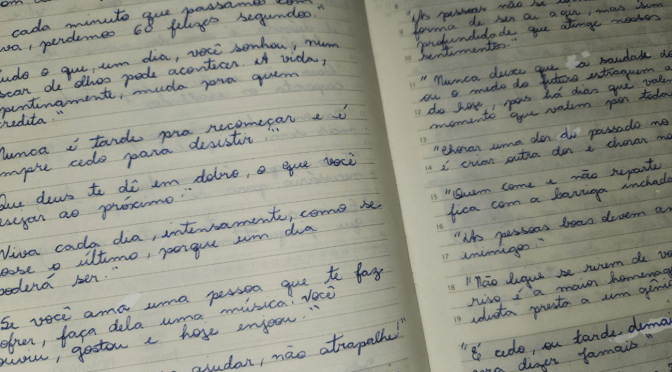 cada minuto que passamos com
va, perdemos 60 felizes segundos."
udo o que, um dia, você sonhou, num
scar de olhos pode acontecer. A vida,
pentinamente, muda pra quem
credita."
Nunca é tarde pra recomeçar e é
mpre cedo para desistir!"
Que deus te dê em dobro, o que você
esejar ao próximo."
Viva cada dia, intensamente, como se
osse o último, porque um dia
poderá ser."
Se você ama uma pessoa que te faz
ofrer, faça dela uma música! Você
ouviu, gostou e hoje enjoou."
ajudar, não atrapalhe!"
"As pessoas não se
forma de ser ou agir, mas sim
profundidade que atinge nossos
sentimentos."
11 "Nunca deixe que a saudade do
ou o medo do futuro estraguem a
12 do hoje, pois há dias que valem
momento que valem por toda
13 "Chorar uma dor do passado no
14 é criar outra dor e chorar no
15 "Quem come e não reparte,
fica com a barriga inchada
16 "As pessoas boas devem am
17 inimigos."
18 "Não ligue se rirem de vo
riso é a maior homenag
19 idiota presta a um gêni
"É cedo, ou tarde demais
pra dizer jamais."